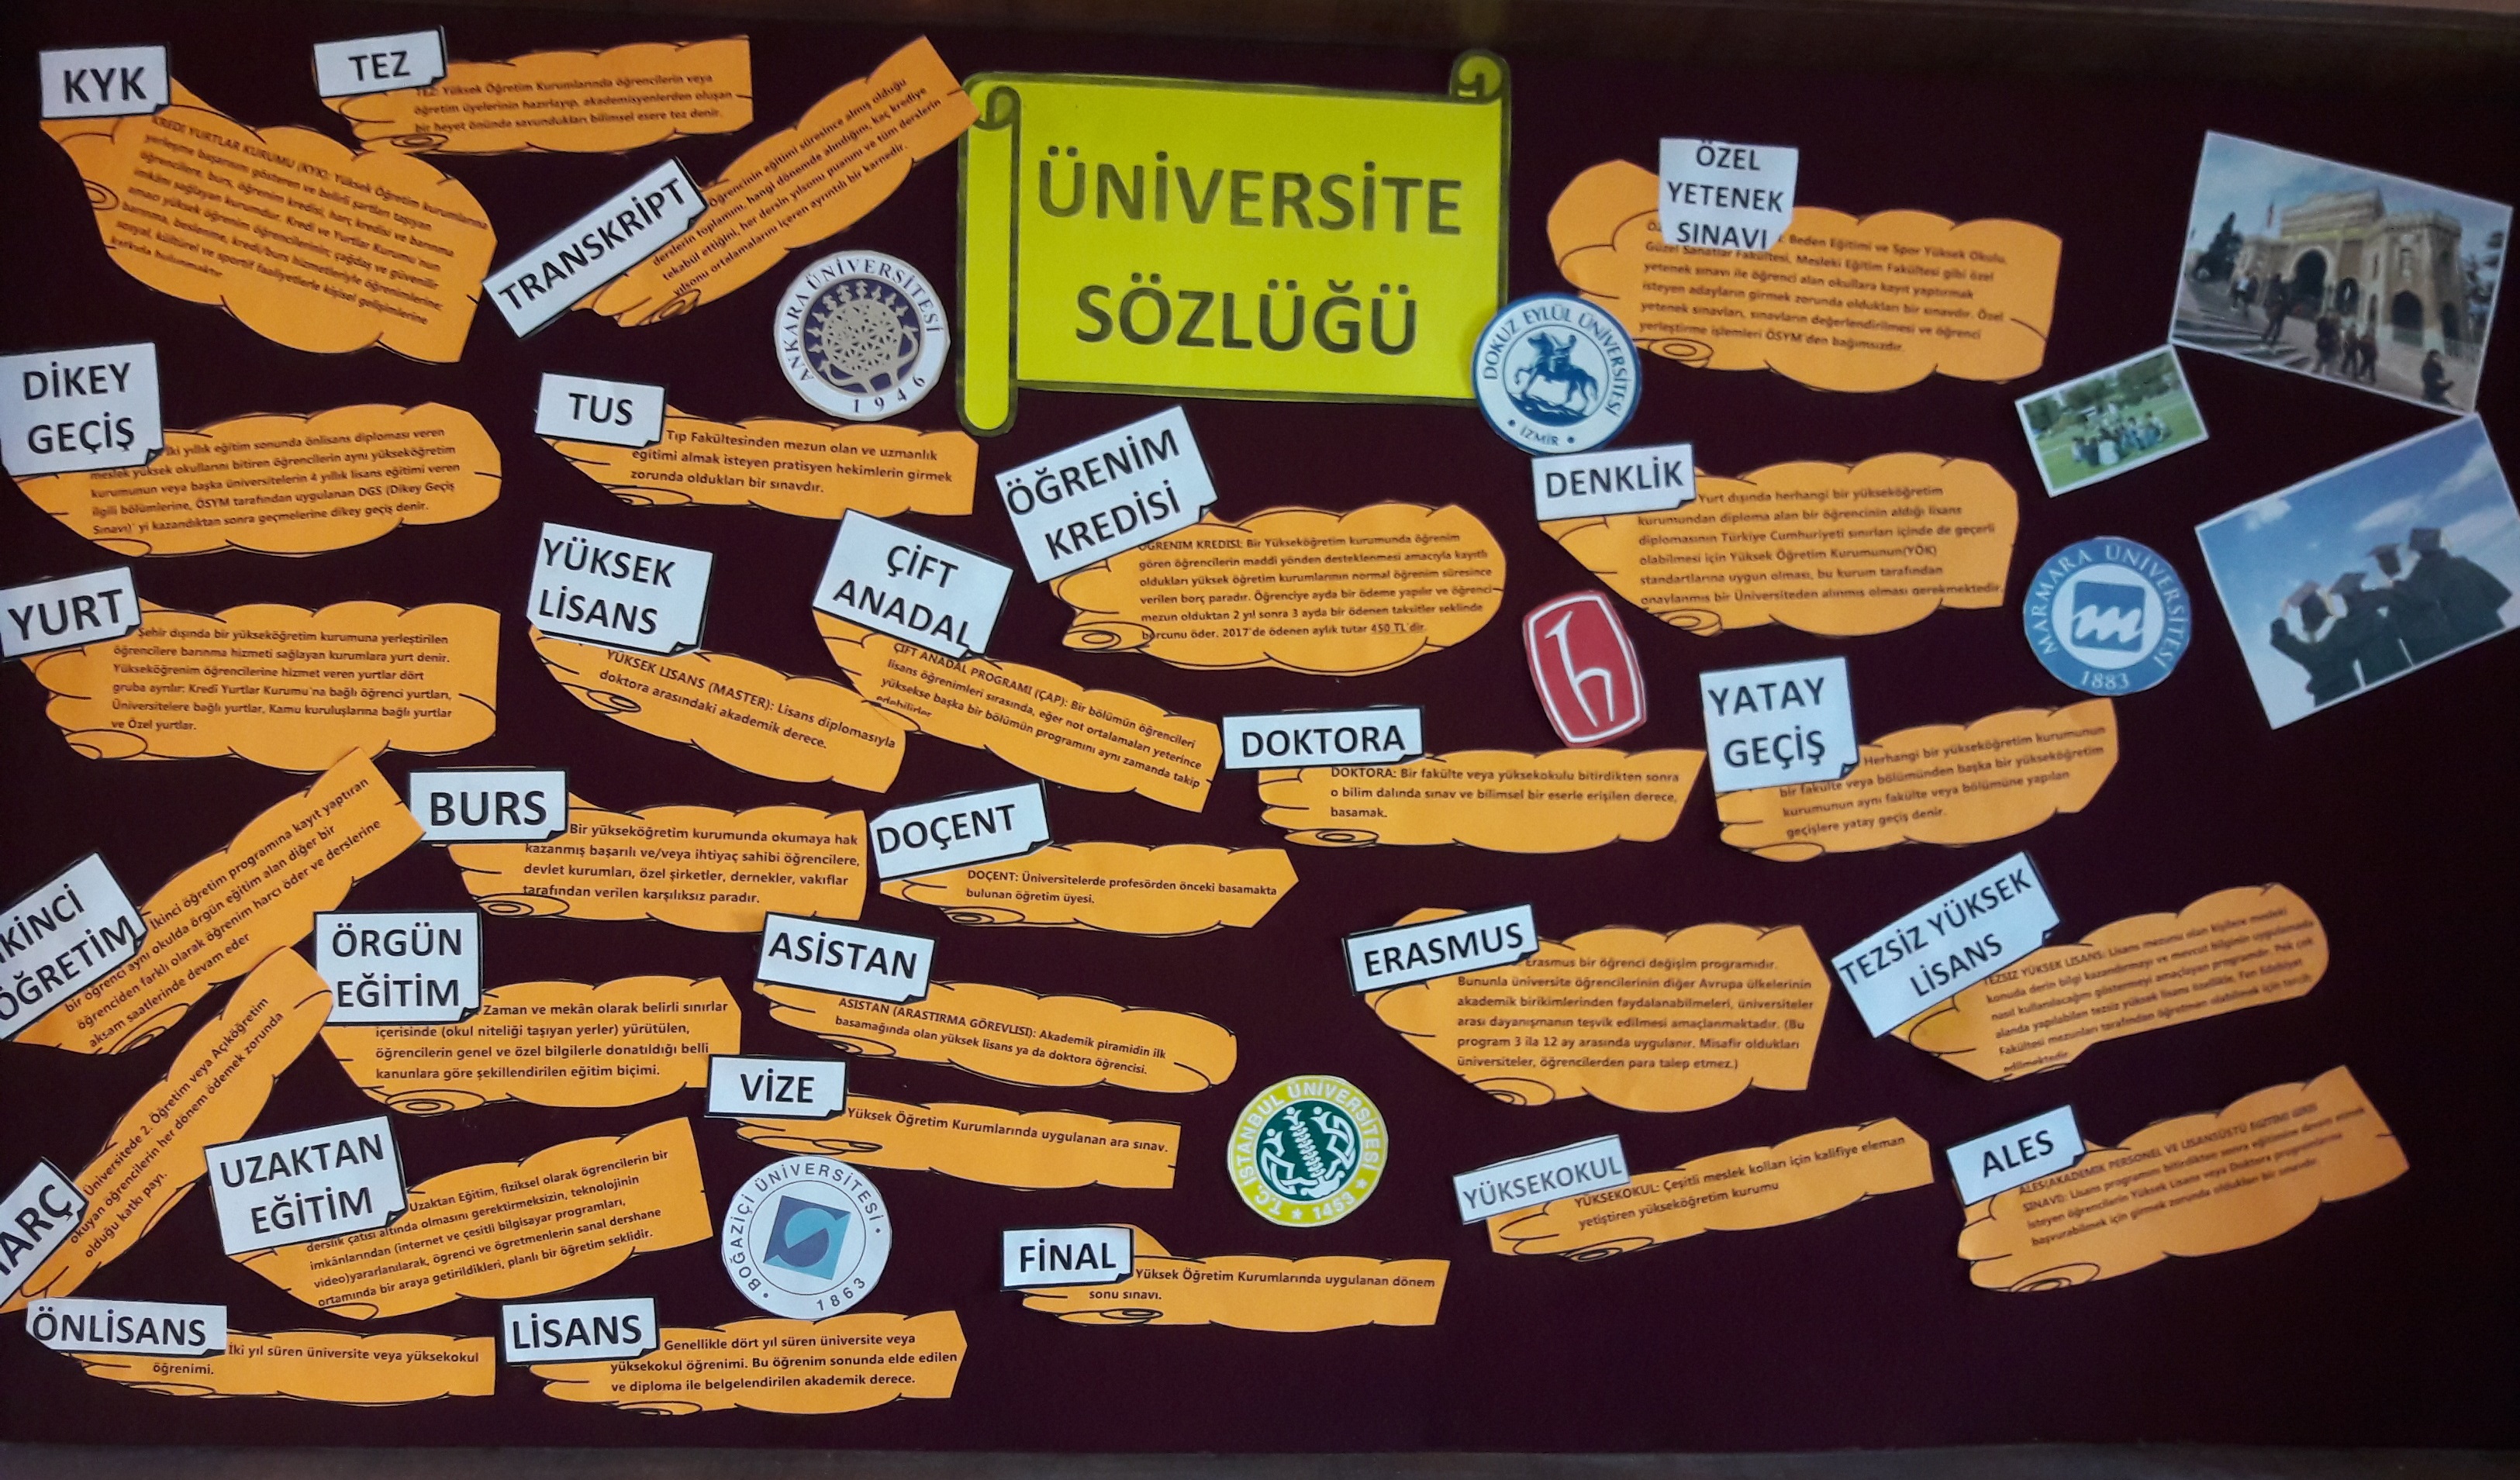 ÜNİVERSİTE
SÖZLÜĞÜ
KYK
KREDİ YURTLAR KURUMU (KYK): Yüksek Öğretim kurumlarına
yerleşme başarısını gösteren ve belirli şartları taşıyan
öğrencilere, burs, öğrenim kredisi, harç kredisi ve barınma
imkânı sağlayan kurumdur. Kredi ve Yurtlar Kurumu'nun
amacı yüksek öğrenim öğrencilerinin; çağdaş ve güvenilir
barınma, beslenme, kredi/burs hizmetleriyle öğrenimlerine;
sosyal, kültürel ve sportif faaliyetlerle kişisel gelişimlerine
katkıda bulunmaktır
TEZ
TEZ: Yüksek Öğretim Kurumlarında öğrencilerin veya
öğretim üyelerinin hazırlayıp, akademisyenlerden oluşan
bir heyet önünde savundukları bilimsel esere tez denir.
TRANSKRİPT
Öğrencinin eğitimi süresince almış olduğu
derslerin toplamını, hangi dönemde alındığını, kaç krediye
tekabül ettiğini, her dersin yılsonu puanını ve tüm derslerin
yılsonu ortalamalarını içeren ayrıntılı bir karnedir.
ANKARA ÜNİVERSİTESİ
1946
DOKUZ EYLÜL ÜNİVERSİTESİ
İZMİR
ÖZEL
YETENEK
SINAVI
Beden Eğitimi ve Spor Yüksek Okulu,
Güzel Sanatlar Fakültesi, Mesleki Eğitim Fakültesi gibi özel
yetenek sınavı ile öğrenci alan okullara kayıt yaptırmak
isteyen adayların girmek zorunda oldukları bir sınavdır. Özel
yetenek sınavları, sınavların değerlendirilmesi ve öğrenci
yerleştirme işlemleri ÖSYM'den bağımsızdır.
DİKEY
GEÇİŞ
İki yıllık eğitim sonunda önlisans diploması veren
meslek yüksek okullarını bitiren öğrencilerin aynı yükseköğretim
kurumunun veya başka üniversitelerin 4 yıllık lisans eğitimi veren
ilgili bölümlerine, ÖSYM tarafından uygulanan DGS (Dikey Geçiş
Sınavı)' yi kazandıktan sonra geçmelerine dikey geçiş denir.
TUS
Tıp Fakültesinden mezun olan ve uzmanlık
eğitimi almak isteyen pratisyen hekimlerin girmek
zorunda oldukları bir sınavdır.
ÖĞRENİM
KREDİSİ
ÖĞRENIM KREDISI: Bir Yükseköğretim kurumunda öğrenim
gören öğrencilerin maddi yönden desteklenmesi amacıyla kayıtlı
oldukları yüksek öğretim kurumlarının normal öğrenim süresince
verilen borç paradır. Öğrenciye ayda bir ödeme yapılır ve öğrenci
mezun olduktan 2 yıl sonra 3 ayda bir ödenen taksitler seklinde
borcunu öder. 2017'de ödenen aylık tutar 450 TL'dir.
DENKLİK
Yurt dışında herhangi bir yükseköğretim
kurumundan diploma alan bir öğrencinin aldığı lisans
diplomasının Türkiye Cumhuriyeti sınırları içinde de geçerli
olabilmesi için Yüksek Öğretim Kurumunun(YÖK)
standartlarına uygun olması, bu kurum tarafından
onaylanmıs bir Üniversiteden alınmıs olması gerekmektedir.
MARMARA ÜNİVERSİTESİ
1883
YURT
Şehir dışında bir yükseköğretim kurumuna yerleştirilen
öğrencilere barınma hizmeti sağlayan kurumlara yurt denir.
Yükseköğrenim öğrencilerine hizmet veren yurtlar dört
gruba ayrılır: Kredi Yurtlar Kurumu'na bağlı öğrenci yurtları,
Üniversitelere bağlı yurtlar, Kamu kuruluşlarına bağlı yurtlar
ve Özel yurtlar.
YÜKSEK
LİSANS
YÜKSEK LISANS (MASTER): Lisans diplomasıyla
doktora arasındaki akademik derece.
ÇİFT
ANADAL
ÇIFT ANADAL PROGRAMI (ÇAP): Bir bölümün öğrencileri
lisans öğrenimleri sırasında, eğer not ortalamaları yeterince
yüksekse başka bir bölümün programını aynı zamanda takip
edebilirler
DOKTORA
DOKTORA: Bir fakülte veya yüksekokulu bitirdikten sonra
o bilim dalında sınav ve bilimsel bir eserle erişilen derece,
basamak.
h
YATAY
GEÇİŞ
Herhangi bir yükseköğretim kurumunun
bir fakülte veya bölümünden başka bir yükseköğretim
kurumunun aynı fakülte veya bölümüne yapılan
geçişlere yatay geçiş denir.
KİNCİ
ÖĞRETİM
İkinci öğretim programına kayıt yaptıran
bir öğrenci aynı okulda örgün eğitim alan diğer bir
öğrenciden farklı olarak öğrenim harcı öder ve derslerine
aksam saatlerinde devam eder
BURS
Bir yükseköğretim kurumunda okumaya hak
kazanmış başarılı ve/veya ihtiyaç sahibi öğrencilere,
devlet kurumları, özel şirketler, dernekler, vakıflar
tarafından verilen karşılıksız paradır.
DOÇENT
DOÇENT: Üniversitelerde profesörden önceki basamakta
bulunan öğretim üyesi.
ÖRGÜN
EĞİTİM
Zaman ve mekân olarak belirli sınırlar
içerisinde (okul niteliği taşıyan yerler) yürütülen,
öğrencilerin genel ve özel bilgilerle donatıldığı belli
kanunlara göre şekillendirilen eğitim biçimi.
ASİSTAN
ASISTAN (ARASTIRMA GÖREVLISI): Akademik piramidin ilk
basamağında olan yüksek lisans ya da doktora öğrencisi.
ERASMUS
Erasmus bir öğrenci değişim programıdır.
Bununla üniversite öğrencilerinin diğer Avrupa ülkelerinin
akademik birikimlerinden faydalanabilmeleri, üniversiteler
arası dayanışmanın teşvik edilmesi amaçlanmaktadır. (Bu
program 3 ila 12 ay arasında uygulanır. Misafir oldukları
üniversiteler, öğrencilerden para talep etmez.)
TEZSİZ YÜKSEK
LİSANS
TEZSIZ YÜKSEK LISANS: Lisans mezunu olan kişilere mesleki
konuda derin bilgi kazandırmayı ve mevcut bilginin uygulamada
nasıl kullanılacağını göstermeyi amaçlayan programdır. Pek çok
alanda yapılabilen tezsiz yüksek lisans özellikle, Fen Edebiyat
Fakültesi mezunları tarafından öğretmen olabilmek için tercih
edilmektedir
HARÇ
Üniversitede 2. Öğretim veya Açıköğretim
okuyan öğrencilerin her dönem ödemek zorunda
olduğu katkı payı.
UZAKTAN
EĞİTİM
Uzaktan Eğitim, fiziksel olarak ögrencilerin bir
derslik çatısı altında olmasını gerektirmeksizin, teknolojinin
imkânlarından (internet ve çesitli bilgisayar programları,
video)yararlanılarak, ögrenci ve ögretmenlerin sanal dershane
ortamında bir araya getirildikleri, planlı bir öğretim seklidir.
VİZE
Yüksek Öğretim Kurumlarında uygulanan ara sınav.
BOĞAZİÇİ ÜNİVERSİTESİ
1863
T.C. İSTANBUL ÜNİVERSİTESİ
1453
YÜKSEKOKUL
YÜKSEKOKUL: Çeşitli meslek kolları için kalifiye eleman
yetiştiren yükseköğretim kurumu
ALES
ALES(AKADEMIK PERSONEL VE LISANSÜSTÜ EGITIMI GIRIS
SINAVI): Lisans programını bitirdikten sonra eğitimine devam etmek
isteyen öğrencilerin Yüksek Lisans veya Doktora programlarına
başvurabilmek için girmek zorunda oldukları bir sınavdır
FİNAL
Yüksek Öğretim Kurumlarında uygulanan dönem
sonu sınavı.
ÖNLİSANS
İki yıl süren üniversite veya yüksekokul
öğrenimi.
LİSANS
Genellikle dört yıl süren üniversite veya
yüksekokul öğrenimi. Bu öğrenim sonunda elde edilen
ve diploma ile belgelendirilen akademik derece.